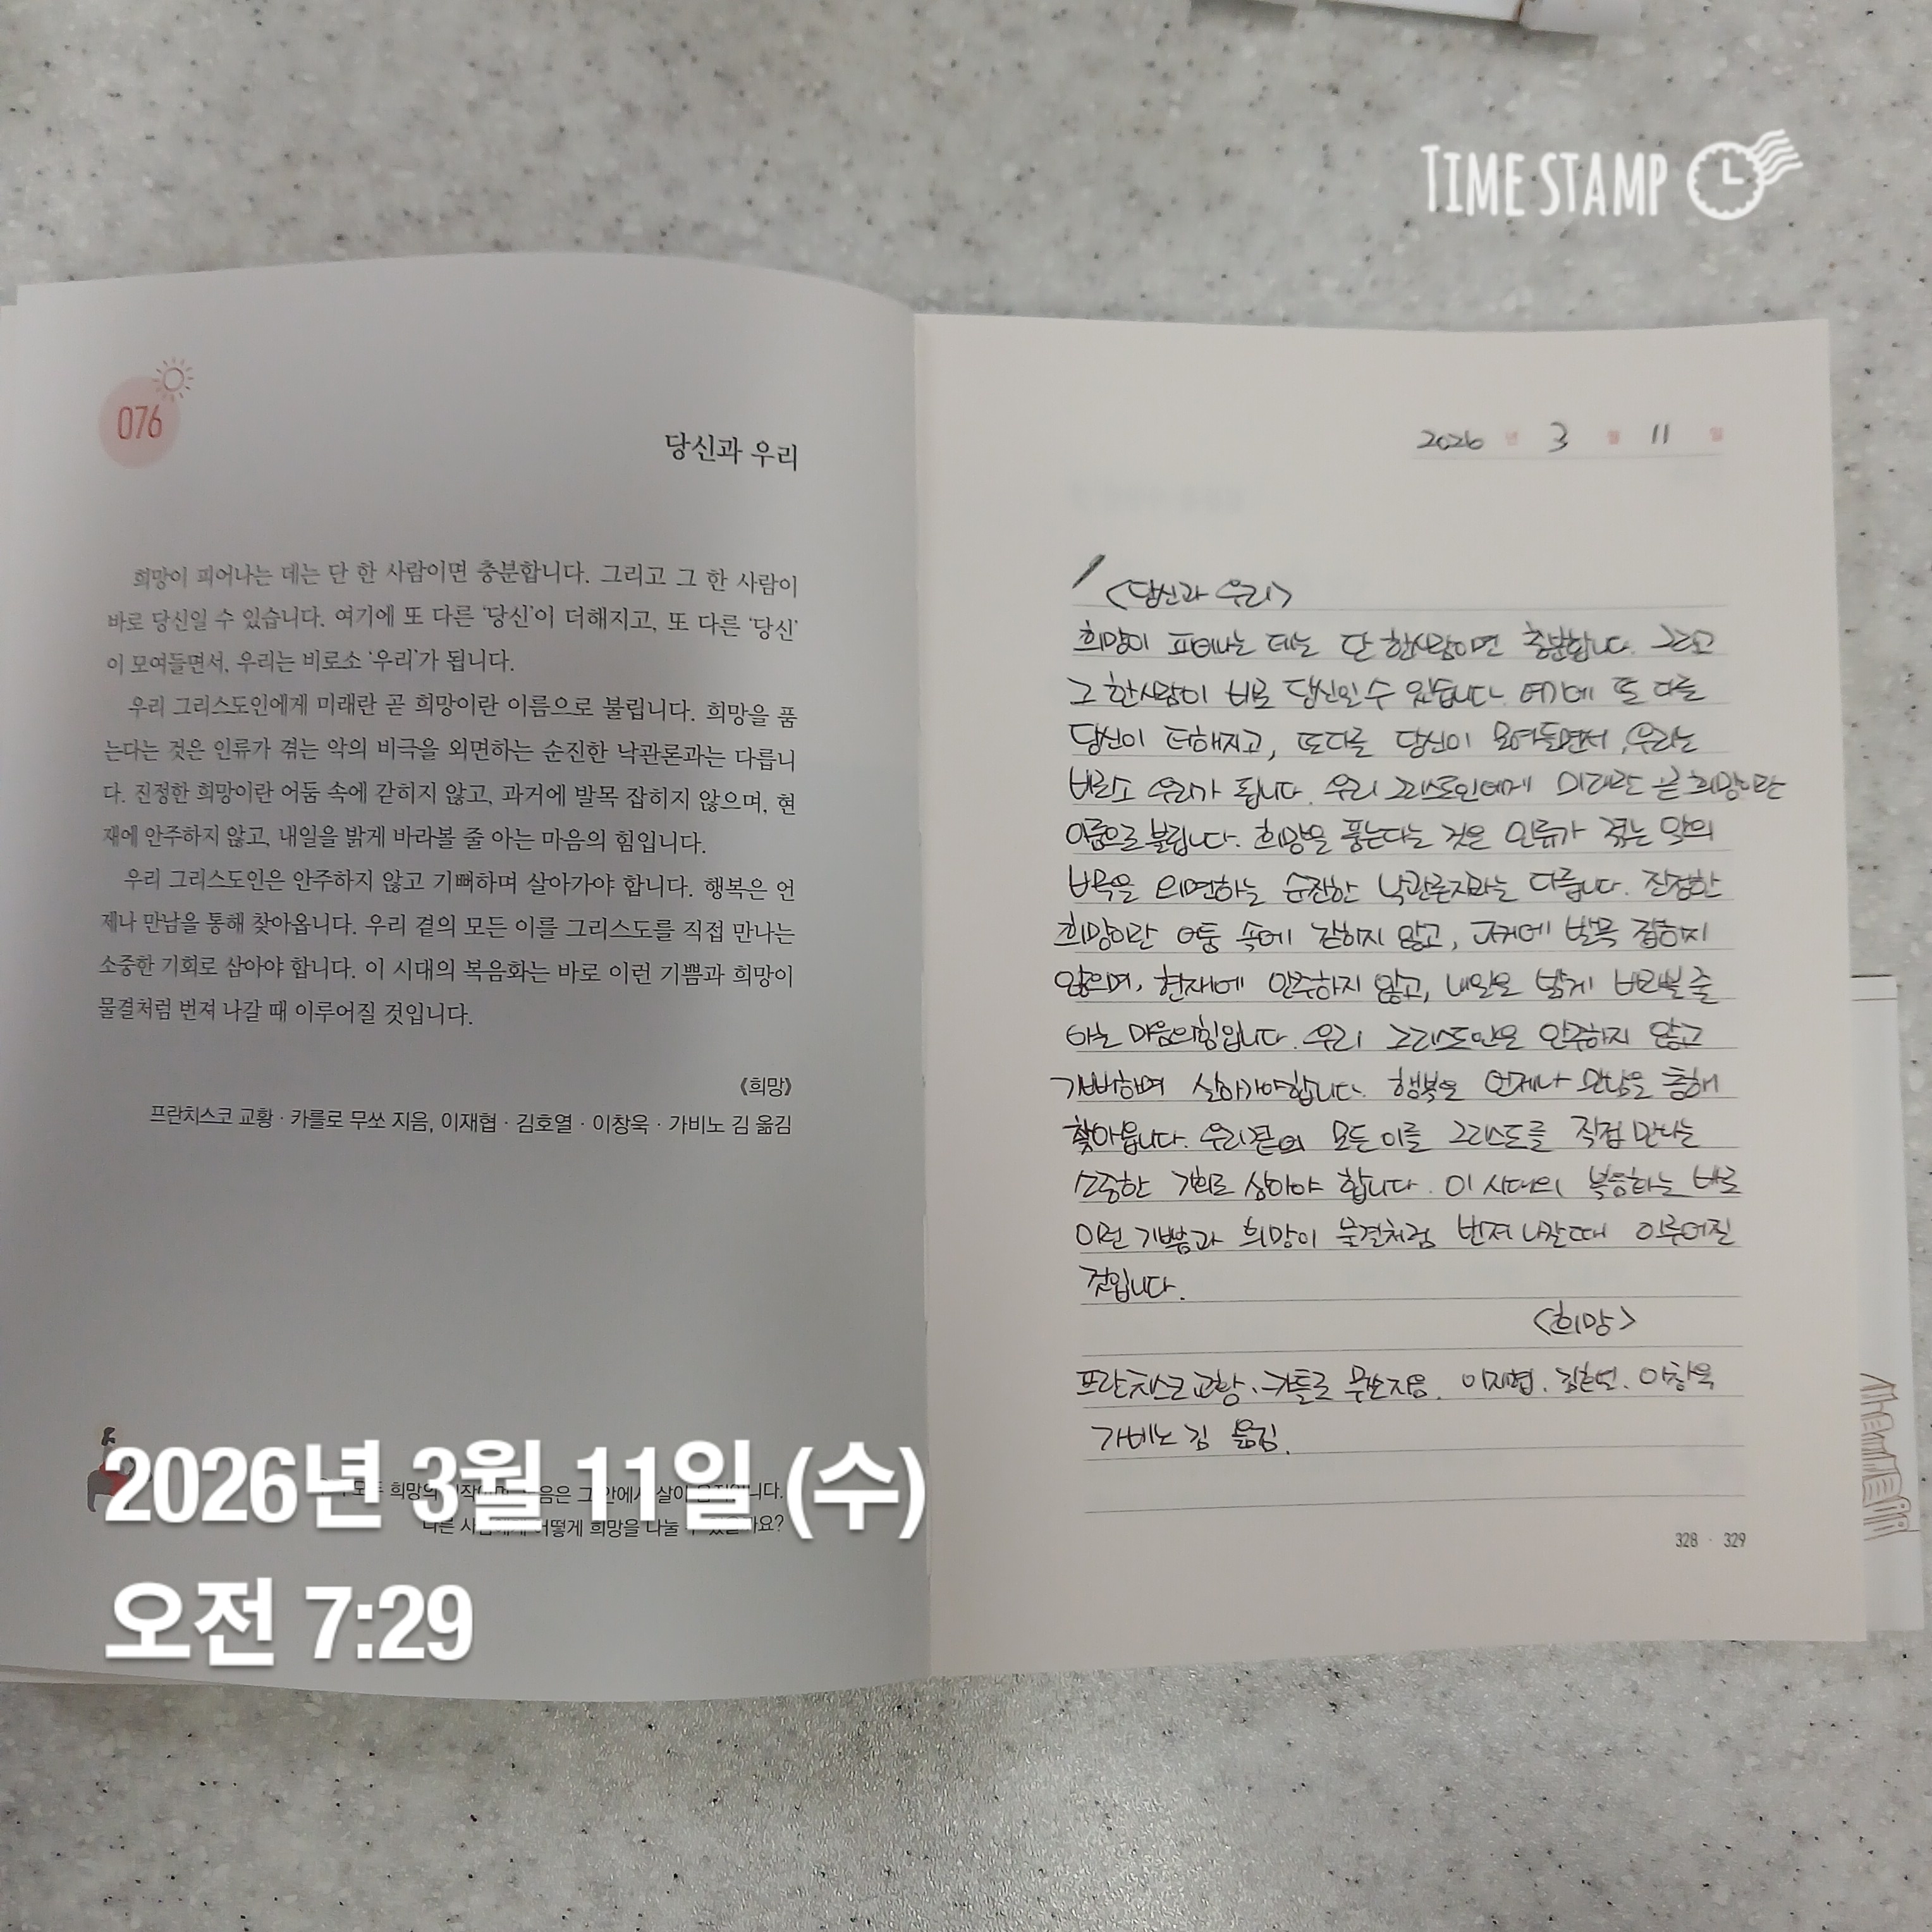 TIME STAMP
076
당신과 우리
희망이 피어나는 데는 단 한 사람이면 충분합니다. 그리고 그 한 사람이
바로 당신일 수 있습니다. 여기에 또 다른 ‘당신’이 더해지고, 또 다른 ‘당신’
이 모여들면서, 우리는 비로소 ‘우리’가 됩니다.
우리 그리스도인에게 미래란 곧 희망이란 이름으로 불립니다. 희망을 품
는다는 것은 인류가 겪는 악의 비극을 외면하는 순진한 낙관론과는 다릅니
다. 진정한 희망이란 어둠 속에 갇히지 않고, 과거에 발목 잡히지 않으며, 현
재에 안주하지 않고, 내일을 밝게 바라볼 줄 아는 마음의 힘입니다.
우리 그리스도인은 안주하지 않고 기뻐하며 살아가야 합니다. 행복은 언
제나 만남을 통해 찾아옵니다. 우리 곁의 모든 이를 그리스도를 직접 만나는
소중한 기회로 삼아야 합니다. 이 시대의 복음화는 바로 이런 기쁨과 희망이
물결처럼 번져 나갈 때 이루어질 것입니다.
《희망》
프란치스코 교황 · 카를로 무쏘 지음, 이재협 · 김호열 · 이창욱 · 가비노 김 옮김
희망의 안에서
어떻게 희망을 나눌
2026년 3월 11일 (수)
오전 7:29
2026 년 3 월 11 일
<당신과 우리>
희망이 피어나는 데는 단 한사람이면 충분합니다. 그리고
그 한사람이 바로 당신일 수 있습니다. 여기에 또 다른
당신이 더해지고, 또다른 당신이 모여들면서, 우리는
비로소 우리가 됩니다. 우리 그리스도인에게 미래란 곧 희망이란
이름으로 불립니다. 희망을 품는다는 것은 인류가 겪는 악의
외면하는 순진한 낙관론자와는 다릅니다. 진정한
희망이란 어둠 속에 갇히지 않고, 과거에 발목 잡히지
않으며, 현재에 안주하지 않고, 내일을 밝게 바라볼 줄
아는 마음의힘입니다. 우리 그리스도인은 안주하지 않고
기뻐하며 살아가야합니다. 행복은 언제나 만남을 통해
찾아옵니다. 우리곁의 모든 이를 그리스도를 직접 만나는
소중한 기회로 삼아야 합니다. 이 시대의 바로
이런 기쁨과 희망이 물결처럼 번져 나갈때 이루어질
것입니다.
<희망>
프란치스코 교황. 카를로 무쏘지음. 이재협. 이창욱
가비노 김 옮김.
328 · 329